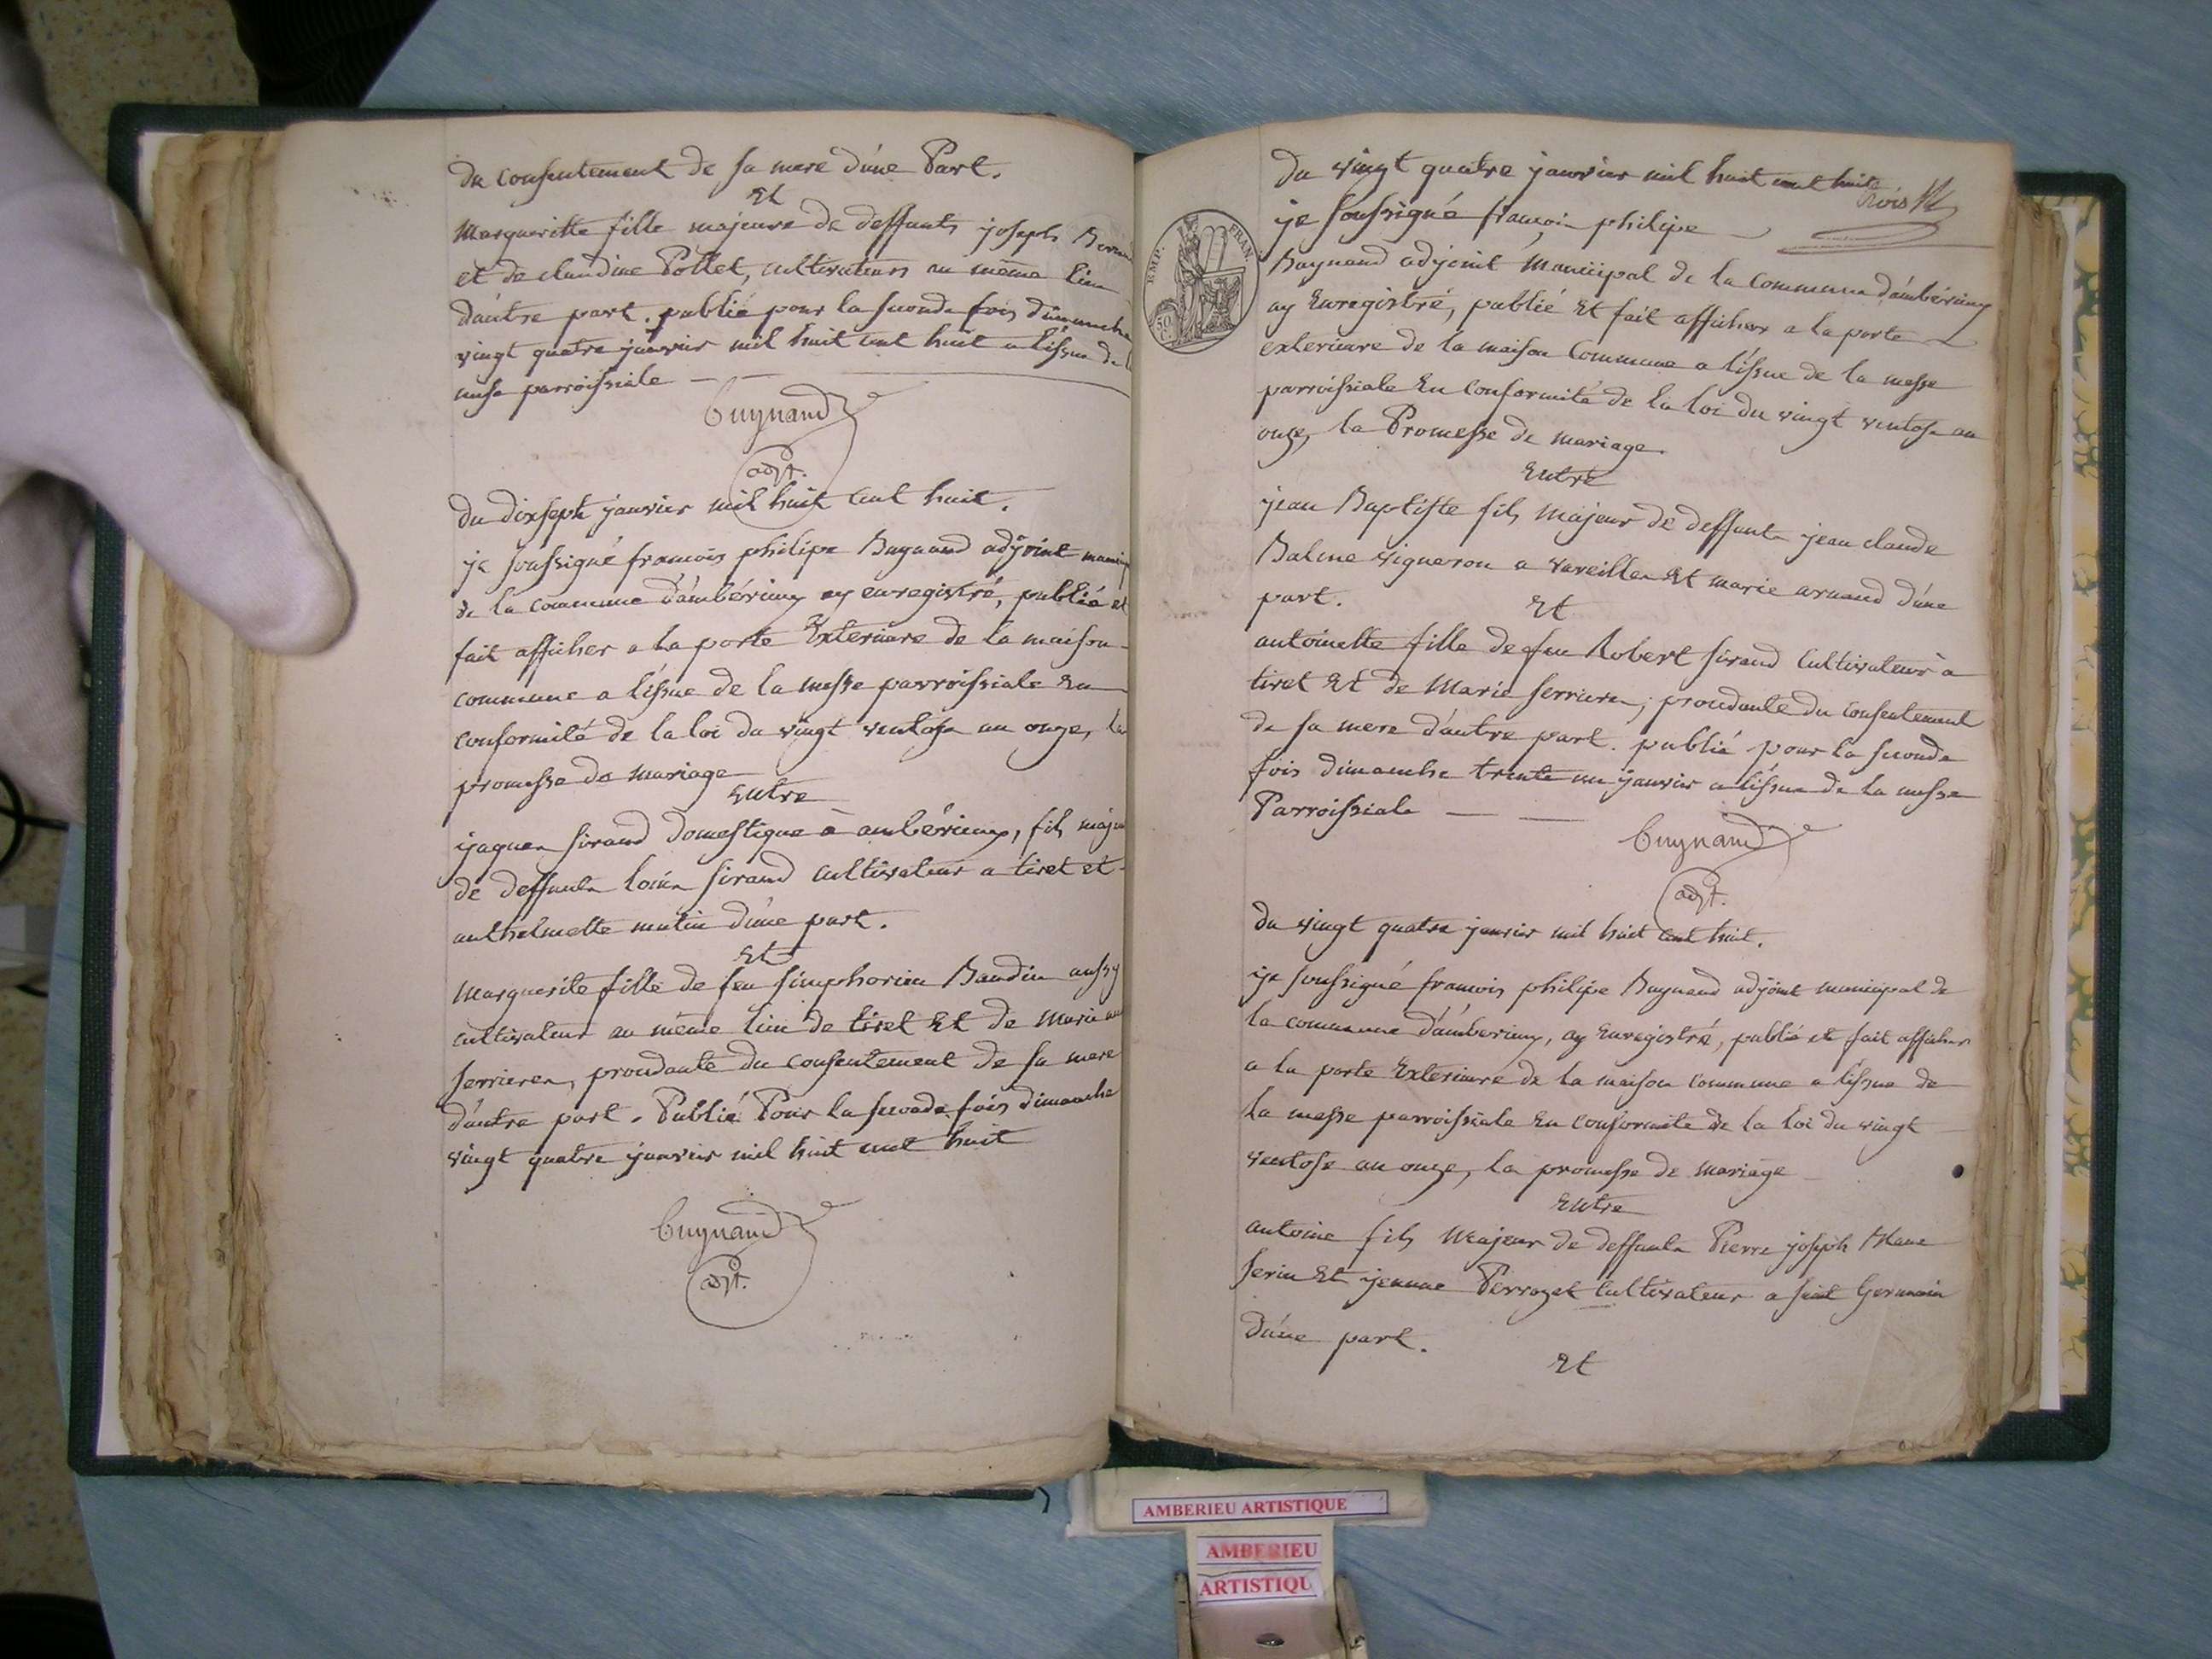 du consentement de sa mere d'une Part.
Et
Margueritte fille majeure de deffunts joseph
et de claudine Pottet, cultivateurs au même lieu
d'autre part. publié pour la seconde fois dimanche
vingt quatre janvier mil huit cent huit a l'issue de
messe parroissiale
Buynand
adjt.
du dix sept janvier mil huit cent huit.
je soussigné francois philipe Buynand adjoint
de la commune d'ambérieux ay enregistré, publié et
fait afficher a la porte Exterieure de la maison
commune a l'issue de la messe parroissiale En
conformité de la loi du vingt ventose an onze, la
promesse de mariage
Entre
jaques sirand domestique à ambérieux, fils
de deffunts louis sirand cultivateur a tiret et
anthelmette mutin d'une part.
Et
Marguerite fille de feu simphorien Baudin aussy
cultivateur au même lieu de tiret Et de Marie
serrieres, procedante du consentement de sa mere
d'autre part. Publié Pour la seconde fois dimanche
vingt quatre janvier mil huit cent huit
Buynand
adjt.
du vingt quatre janvier mil huit cent huit
trois
EMP. FRAN.
50 C.
je soussigné francois philipe
Buynand adjoint Municipal de la commune d'ambérieux
ay Enregistré, publié Et fait afficher a la porte
exterieure de la maison Commune a l'issue de la messe
parroissiale En conformité de la loi du vingt ventose an
onze, la Promesse de mariage
Entre
jean Baptiste fils majeur de deffunts jean claude
Balme vigneron a vareilles Et marie arnaud d'une
part.
Et
antoinette fille de feu Robert sirand Cultivateur à
tiret Et de Marie serrieres; procedante du consentement
de sa mere d'autre part. publié pour la seconde
fois dimanche trente un janvier a l'issue de la messe
Parroissiale
Buynand
adjt.
du vingt quatre janvier mil huit cent huit.
je soussigné francois philipe Buynand adjoint municipal de
la commune d'amberieux, ay Enregistré, publié et fait afficher
a la porte Exterieure de la maison commune a l'issue de
la messe parroissiale En conformité de la loi du vingt
ventose an onze, la promesse de mariage
Entre
antoine fils Majeur de deffunts Pierre joseph Blanc
serin Et jeanne Perrozet Cultivateur a saint Germain
d'une part.
Et
AMBERIEU ARTISTIQUE
AMBERIEU
ARTISTIQU